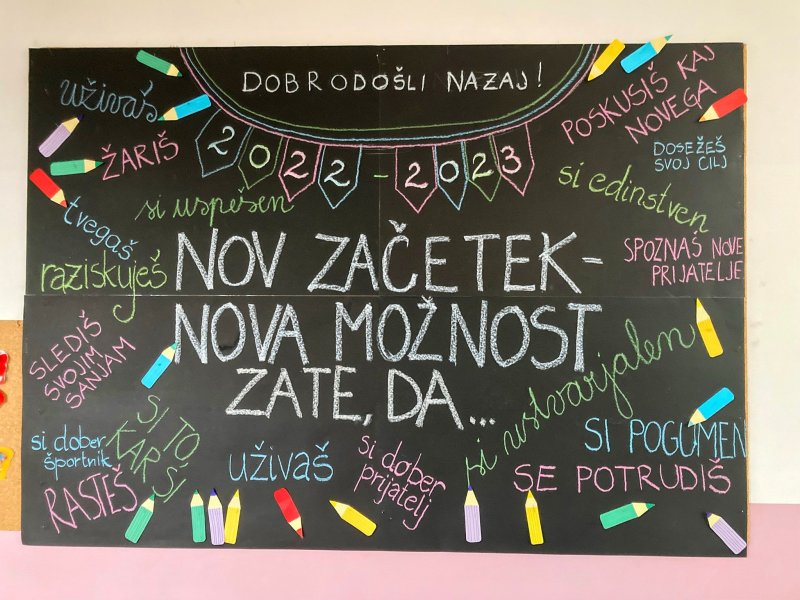 DOBRODOŠLI NAZAJ!
2022-2023
uživaš
ŽARIŠ
POSKUSIŠ KAJ
NOVEGA
DOSEŽEŠ
SVOJ CILJ
si uspešen
si edinstven
tvegaš
raziskuješ
SPOZNAŠ NOVE
PRIJATELJE
NOV ZAČETEK-
NOVA MOŽNOST
ZATE, DA...
SLEDIŠ
SVOJIM
SANJAM
si ustvarjalen
SI TO,
KAR SI
si dober
športnik
RASTEŠ
uživaš
si dober
prijatelj
SI POGUMEN
SE POTRUDIŠ